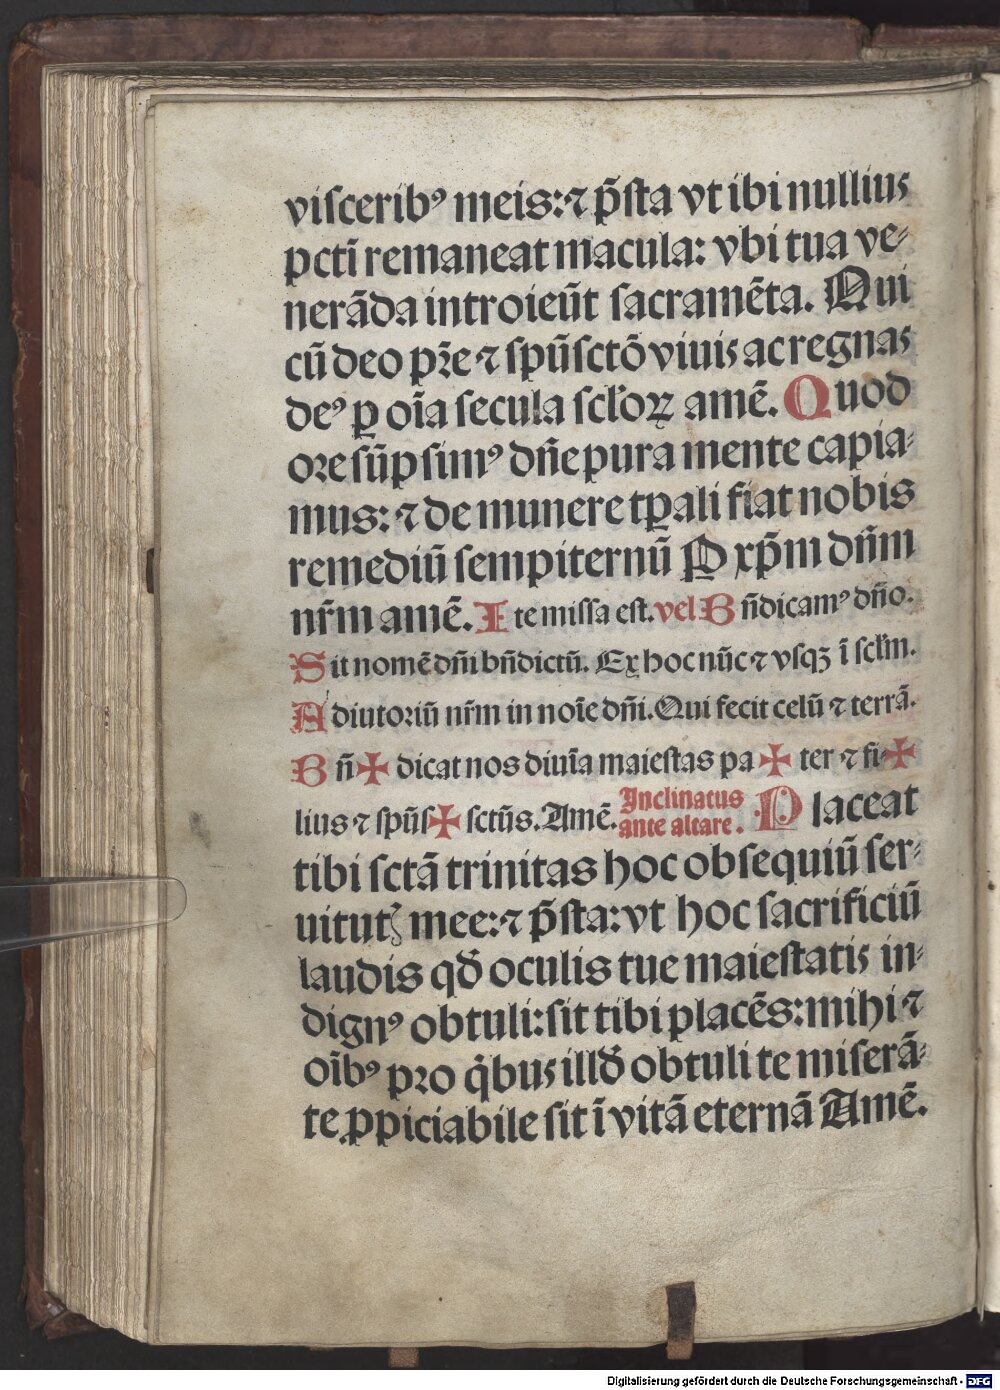 viſceribꝰ meis:⁊ p̃ſta vt ibi nullius
pctĩ remaneat macula: vbi tua ve⸗
nerãda introieũt ſacramẽta. Qui
cũ deo pꝛ̃e ⁊ ſpũſctõ viuis ac regnas
deꝰ ꝑ oĩa ſecula ſcl̃oꝝ amẽ. Quod
oꝛe ſũpſimꝰ dñe pura mente capia⸗
mus: ⁊ de munere tꝑali fiat nobis
remediũ ſempiternũ P xp̃m dñm
nr̃m amẽ. Ite miſſa eſt. vel Bñdicamꝰ dño.
Sit nomẽ dñi bñdictũ. Ex hoc nũc ⁊ vſqꝫ ĩ ſcl̃m.
Adiutoꝛiũ nr̃m in noĩe dñi. Qui fecit celũ ⁊ terrã.
Bñ✠dicat nos diuĩa maieſtas pa✠ter ⁊ fi⸗✠
lius ⁊ ſpũſ✠ſctũs. Amẽ. Inclinatus ante altare. Placeat
tibi ſctã trinitas hoc obſequiũ ſer⸗
uitutꝭ mee:⁊ p̃ſta: vt hoc ſacrificiũ
laudis qð oculis tue maieſtatis in⸗
dignꝰ obtuli: ſit tibi placẽs: mihi ⁊
oĩbꝰ pꝛo q̃bus illð obtuli te miſerã⸗
te ꝓpiciabile ſit ĩ vitã eternã Amẽ.
Digitalisierung gefördert durch die Deutsche Forschungsgemeinschaft - DFG